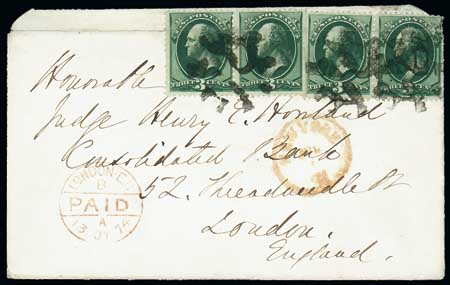 U.S. POSTAGE U.S. POSTAGE U.S. POSTAGE U.S. POSTAGE
THREE 3 CENTS THREE 3 CENTS THREE 3 CENTS THREE 3 CENTS
Honorable
Judge Henry E. Howland
Consolidated Bank
52. Threadneedle St
London.
England.
LONDON E.C
B
PAID
A
13 JY 74